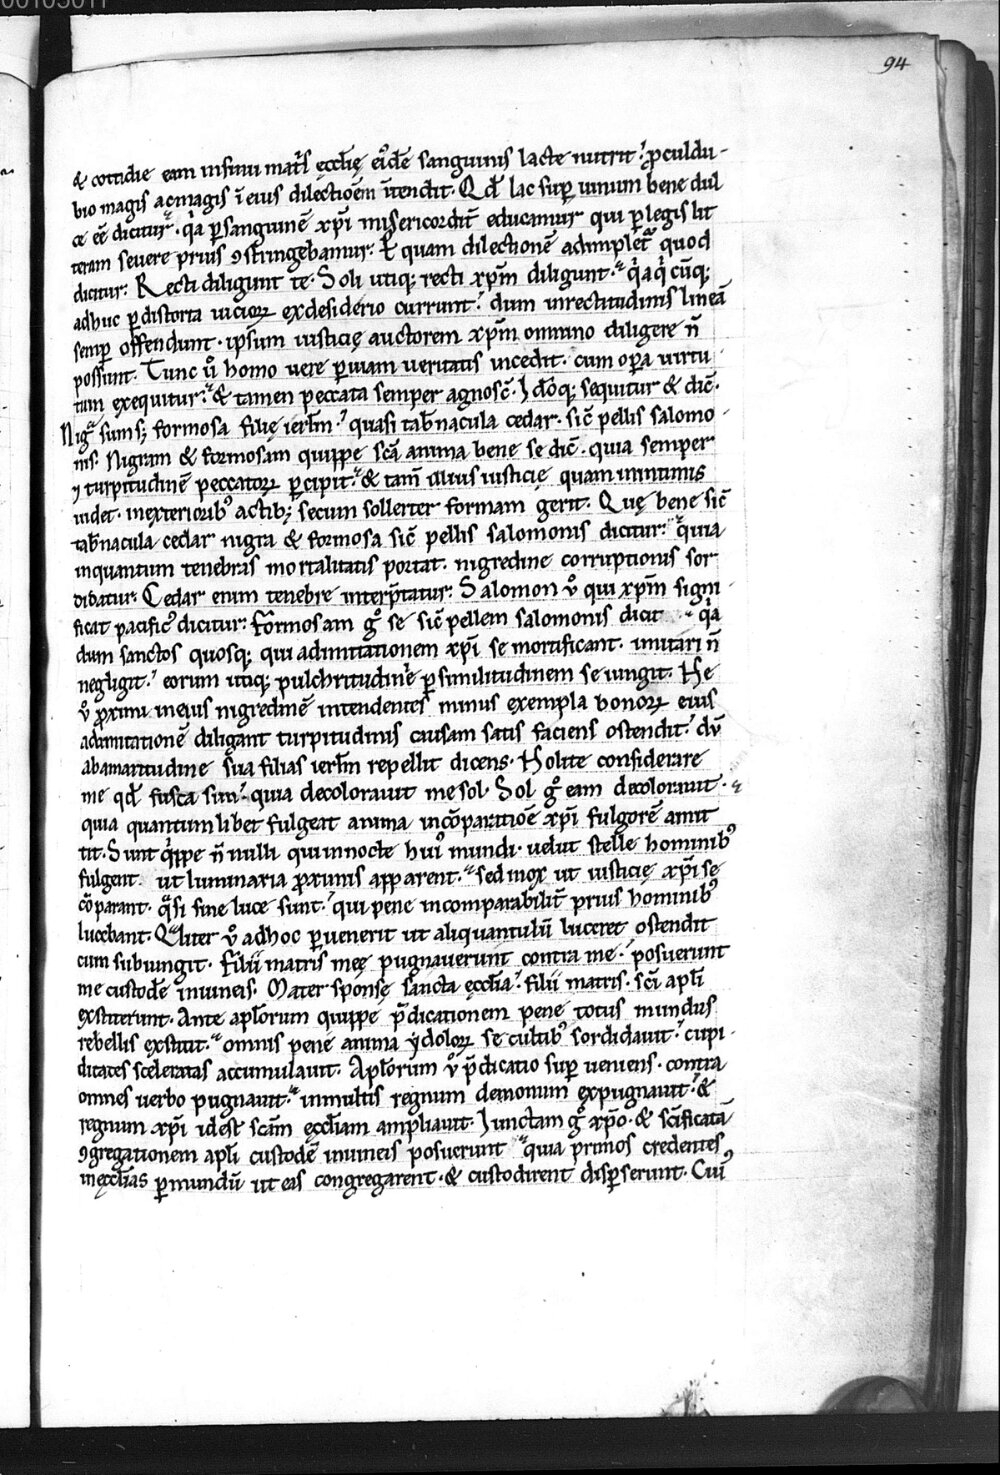 94
& cottidie eam in sinu matris ęcclię eide͂ sanguinis lacte nutrit. ꝓculdu-
bio magis ac magis i͂ eius dilectioe͂m i͂tendit. Qd̄ lac sup̱ uinum bene dul
ce ee͂ dicitur. q̍a p̱ sanguine͂ xp̄i misericordit̄ educamur qui p̱ legis lit
teram seuere prius ꝯstringebamur. Et quam dilectione͂ adimplet̄ quod
dicitur: Recti diligunt te. Soli utiq; recti xp̄m diligunt. q̍a q̍cu͂q;
adhuc p̱ distorta uicioꝝ ex desiderio currunt. dum in rectitudinis linea͂
semp̱ offendunt. ipsum iusticię auctorem xp̄m omnino diligere n̄
possunt. Tunc ů homo uere p̱ uiam ueritatis incedit. cum op̱a uirtu
tum exequitur. & tamen peccata semper agnosc̄. Idcoq; sequitur & dic̄.
Nig̾ sum s; formosa filię ierłm. quasi tab̄nacula cedar. sic̄ pellis salomo
nis. Nigram & formosam quippe sc̄a anima bene se dic̄. quia semper
& turpitudine͂ peccatoꝝ p̱cipit. & tam̄ illius iusticię quam in intimis
uidet. in exteriorib; actib; secum sollerter formam gerit. Quę bene sic̄
tab̄nacula cedar nigra & formosa sic̄ pellis salomonis dicitur. quia
inquantum tenebras mortalitatis portat. nigredine corruptionis sor
didatur. Cedar enim tenebre interp̄tatur. Salomon ů qui xp̄m signi
ficat pacific᾿ dicitur. formosam g̊ se sic̄ pellem salomonis dicit q̍a
dum sanctos quosq; qui ad imitationem xp̄i se mortificant. imitari n̄
negligit. eorum utiq; pulchritudini p̱ similitudinem se iungit. Ne
ů ꝓximi in eius nigredine͂ intendentes minus exempla bonoꝝ eius
ad imitatione͂ diligant turpitudinis causam satis faciens ostendit. du͂
ab amaritudine sua filias ierłm repellit dicens. Nolite considerare
me qd̄ fusca sim. quia decolorauit me sol. Sol g̊ eam decolorauit.
quia quantumlibet fulgeat anima in co͂paratio͂e xp̄i fulgore͂ amit
tit. Sunt q̍ppe n̄nulli qui in nocte hui᾿ mundi. uelut stelle hominib᾿
fulgent. ut luminaria ꝓximis apparent. sed mox ut iusticię xp̄i se
co͂parant. q̾si sine luce sunt. qui pene incomparabilit̄ prius hominib᾿
lucebant. Qualiter ů ad hoc p̱uenerit ut aliquantulu͂ luceret ostendit
cum subiungit. filii matris meę pugnauerunt contra me. posuerunt
me custode͂ in uineis. Mater sponsę sancta ęcclia. filii matris. sc̄i apłi
exstiterunt. Ante apłorum quippe p̄dicationem pene totus mundus
rebellis exstitit. omnis pene anima ydoloꝝ se cultib᾿ sordidauit. cupi
ditates sceleratas accumulauit. Apłorum ů p̄dicatio sup̱ueniens. contra
omnes uerbo pugnauit. in multis regnum demonum expugnauit. &
regnum xp̄i idest sc̄am ęccliam ampliauit. Iunctam g̊ xp̄o. & sc̄ificata͂
ꝯgregationem apłi custode͂ in uineis posuerunt quia primos credentes
in ęcclias p̱ mundu͂ ut eas congregarent. & custodirent disp̱serunt. Cui᾿